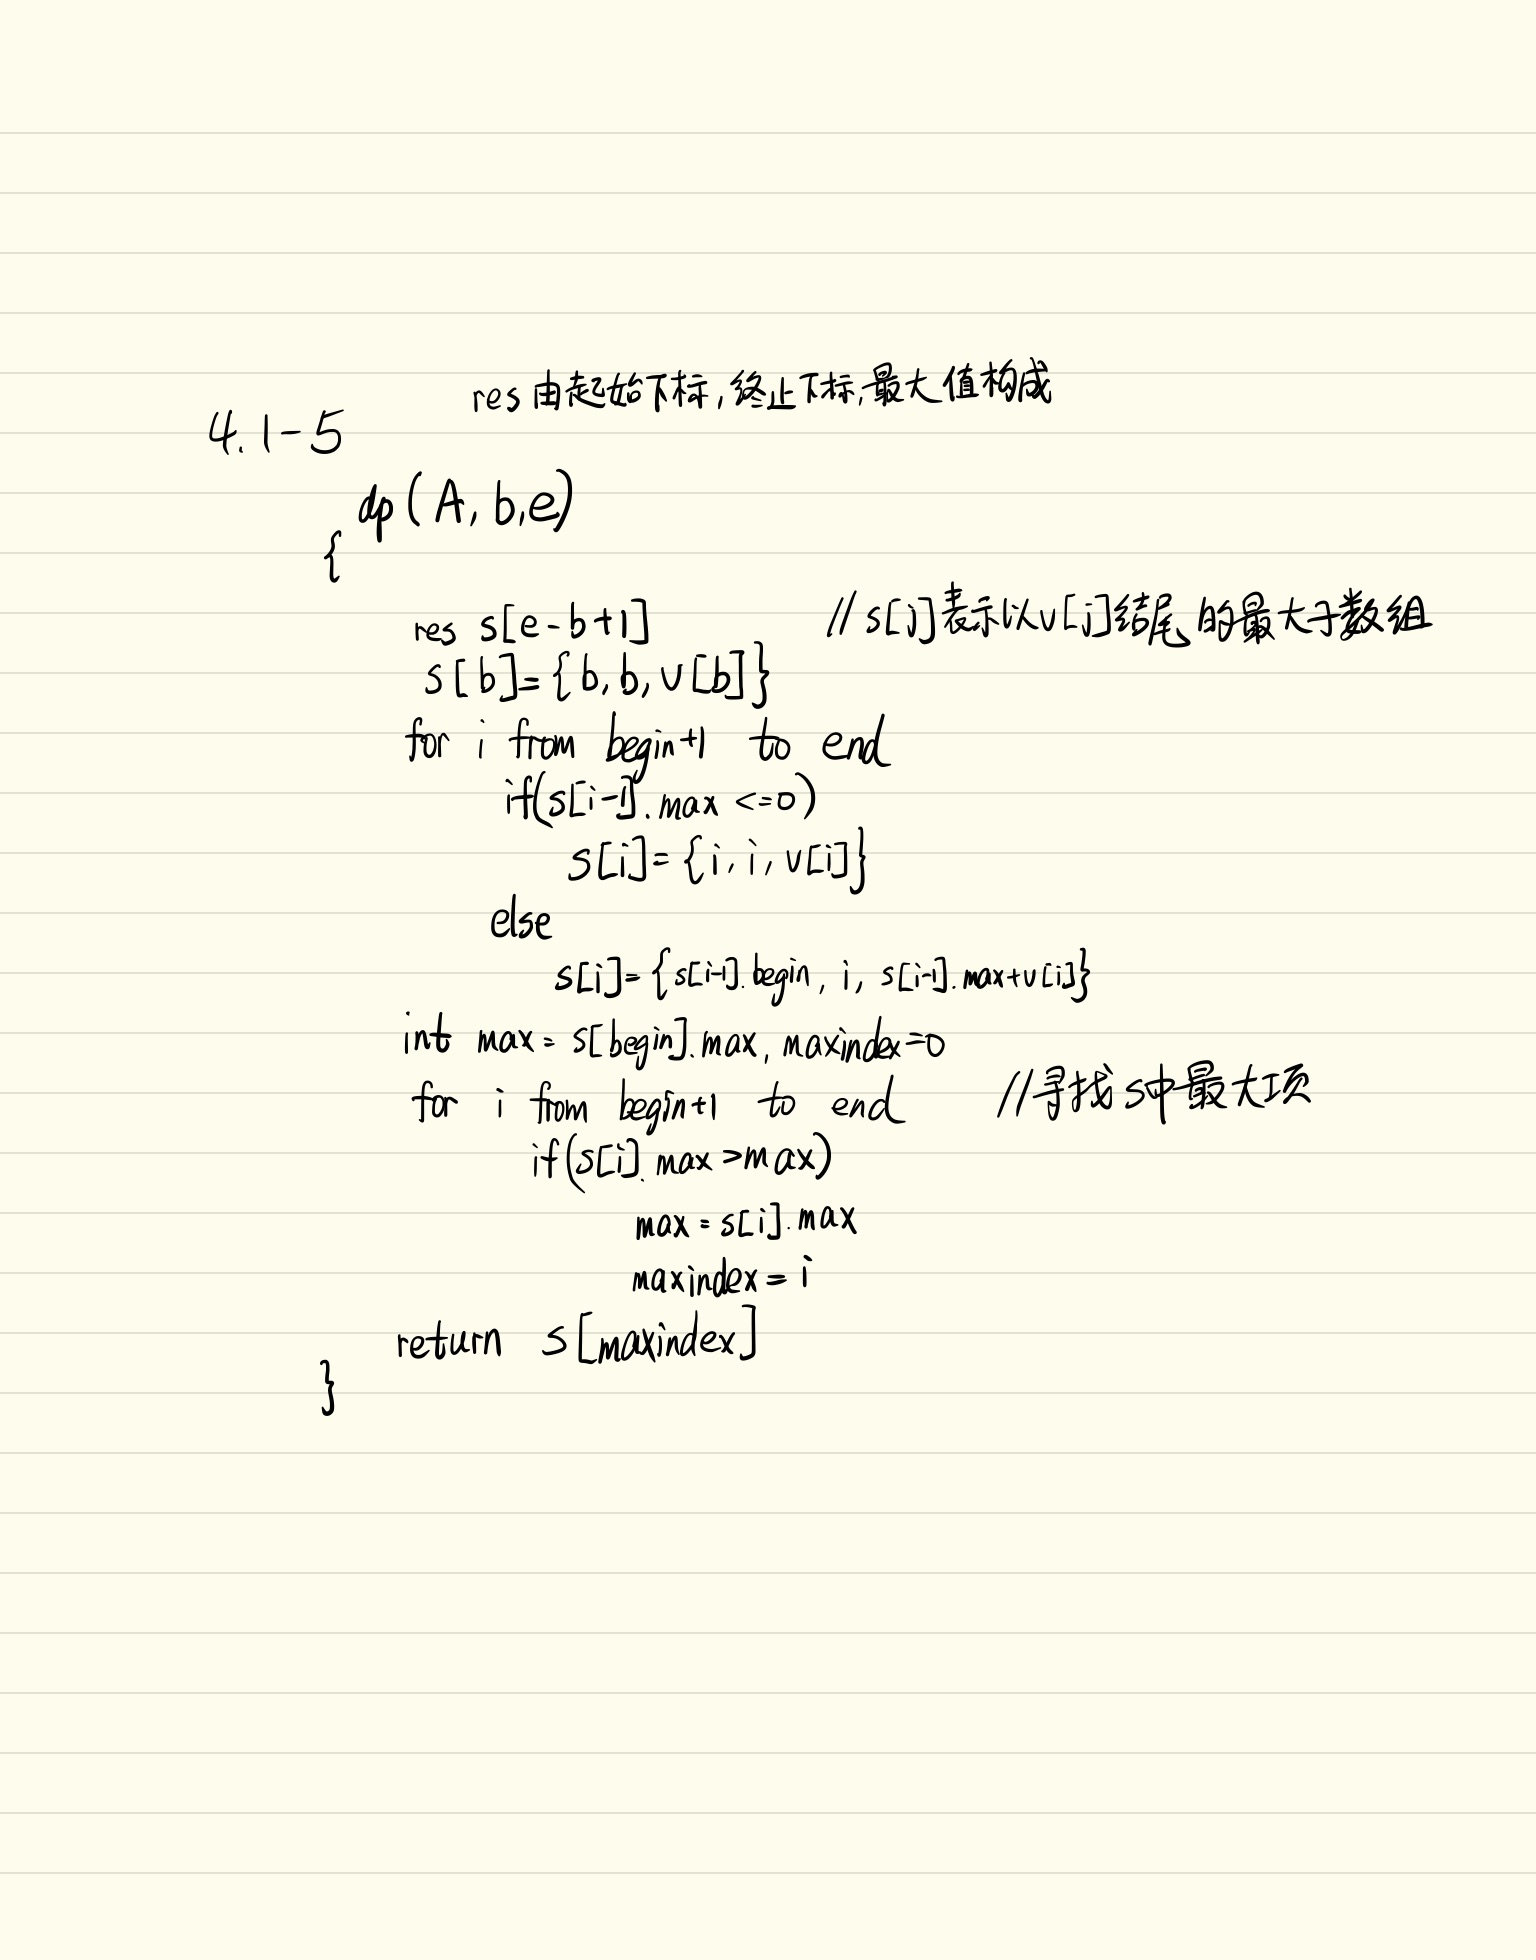 res由起始下标,终止下标,最大值构成
4.1-5
dp(A, b,e)
{
res s[e-b+1] //s[j]表示以v[j]结尾的最大子数组
s[b]={b,b,v[b]}
for i from begin+1 to end
if(s[i-1].max <=0)
s[i]={i,i,v[i]}
else
s[i]={s[i-1].begin, i, s[i-1].max+v[i]}
int max= s[begin].max, maxindex=0
for i from begin+1 to end //寻找s中最大项
if(s[i].max >max)
max = s[i].max
maxindex = i
return s[maxindex]
}